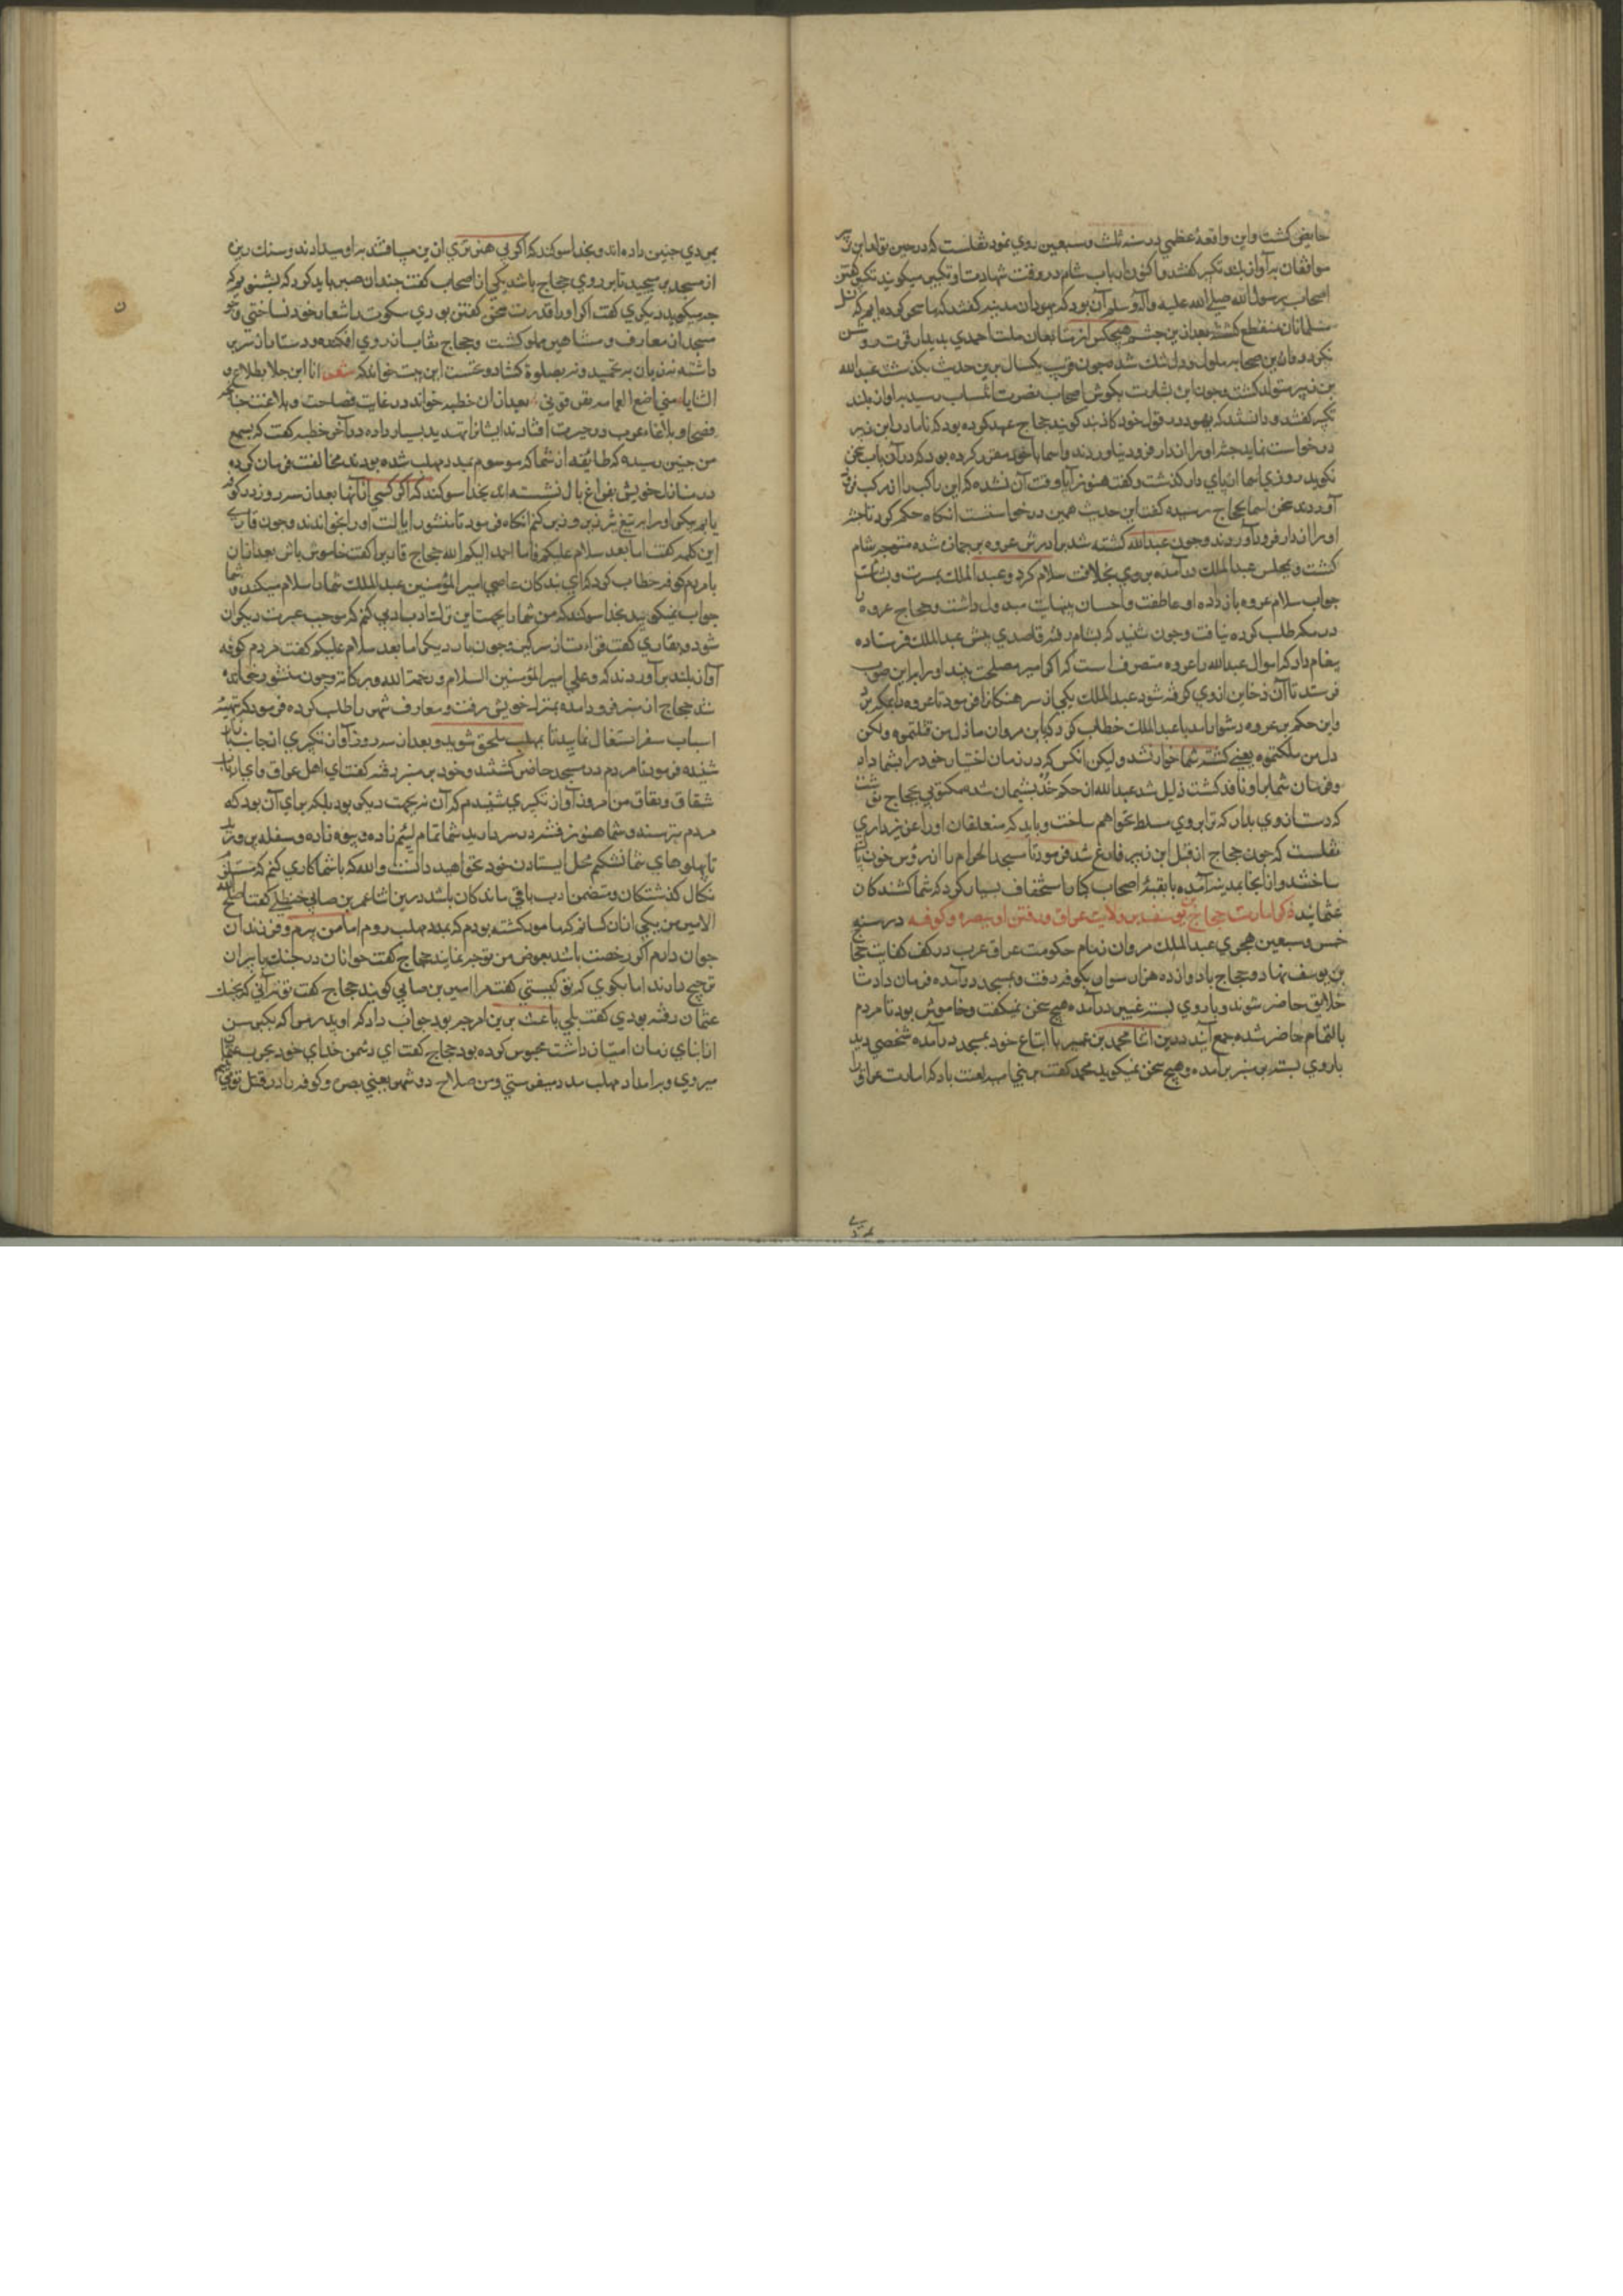 حایض کشت واین واقعهٔ عظمی در سنه ثلث و سبعین روی نمود نقلست که در حین تولد ابن زبیر
موافقان به آواز بلند تکبیر گفتند و اکنون ارباب شام در وقت شهادت او تکبیر میکویند تکبیر گفتن
اصحاب رسول الله صلی الله علیه وآله وسلم آن بود که یهودان مدینه گفتند که ما سحر کرده ایم که نسل
مسلمانان منقطع کشته بعد ازین
نکرد و صحابه ملول و دل تنك شده چون قریب یکسال برین حدیث بکذشت عبد الله
بن زبیر متولد کشت و چون این بشارت بکوش اصحاب نصرت انتساب رسید به آواز بلند
تکبیر گفتند و دانستند که یهود در قول خود کاذبند کویند حجاج عهد کرده بود که تا مادر ابن زبیر
درخواست ننماید جثه او را از دار فرود نیاورند و اسما با خود مقرر کرده بود که در آن باب سخن
نکوید روزی اسما از پای دار کذشت و گفت هنوز آیا وقت آن نشده که این راکب را از مرکب فرود
آورند سخن اسما بحجاج رسیده گفت این حدیث همین درخواستست انکاه حکم کرد تا جثه
او را از دار فرود آوردند و چون عبدالله کشته شد برادرش عروه بر جمازه شده متوجه شام
کشت و بمجلس عبدالملك درآمده بر وی بخلافت سلام کرد و عبدالملك بمسرت و بشاشت
جواب سلام عروه باز داده او عاطفت و احسان بینهایت مبذول داشت و حجاج عروه را
در مکه طلب کرده نیافت و چون شنید که بشام رفته قاصدی پیش عبدالملك فرستاده
پیغام داد که اموال عبدالله را عروه متصرف است اکر امیر مصلحت بیند او را برین صوب
فرستد تا آن ذخایر از وی کرفته شود عبدالملك یکی از سرهنکان را فرمود تا عروه را بمکه برد
واین حکم بر عروه دشوار آمد با عبدالملك خطاب کرد که یا بن مروان ما ذل من قتلتموه ولکن
ذل من ملکتموه یعنی کشته شما خوار نشد ولیکن انکس که در زمان اختیار خود را بشما داد
و فرمان شما برو نافذ کشت ذلیل شد عبدالله از حکم خود پشیمان شده مکتوبی بحجاج نوشت
که دست از وی بدار که ترا بر وی مسلط نخواهم ساخت و باید که متعلقان او را عزیز داری
نقلست که چون حجاج از قبل ابن زبیر فارغ شد فرمود تا مسجد الحرام را از رؤس خون پاك
ساختند و از انجا بمدینه آمده با بقیهٔ اصحاب کبار استخفاف بسیار کرد که شما کشندکان
عثمانید ذکر امارت حجاج بن یوسف بر ولایت عراق و رفتن او ببصره و کوفه در سنه
خمس و سبعین هجری عبدالملك مروان زمام حکومت عراق عرب در کف کفایت حجاج
بن یوسف نهاد و حجاج با دوازده هزار سوار بکوفه رفت و بمسجد درآمده فرمان داد تا
خلایق حاضر شوند و با روی بسته بمنبر درآمده هیچ سخن نمیکفت و خاموش بود تا مردم
بالتمام حاضر شده جمع آیند درین اثنا محمد بن عمیر با اتباع خود بمسجد درآمده شخصی دید
با روی بسته بر منبر برآمده و هیچ سخن نمیکوید محمد کفت بر بنی امیه لعنت باد که امارت عراق را
بمردی چنین داده اند و بخدا سوکند که اکر بی هنر تری ازین میافتند به او میدادند و سنك ریزه
از مسجد برمیچید تا بر روی حجاج باشد یکی از اصحاب کفت چندان صبر باید کرد که بشنویم که
چه میکوید دیکری کفت اکر او را قدرت سخن کفتن بودی سکوت را شعار خود نساختی و چون
مسجد از معارف و مشاهیر مملو کشت حجاج نقاب از روی افکنده و دستار از سر بر
داشته نه زبان به تحمید و نه بصلوة کشاد و نخست این بیت خواند که شعر انا ابن جلا وطلاع
الثنایا متی اضع العمامه تعرفونی بعد از ان خطبه خواند در غایت فصاحت و بلاغت چنانکه
فصحا و بلغاء عرب در حیرت افتادند ایشانرا تهدید بسیار داده در آخر خطبه کفت که بسمع
من چنین رسیده که طایفه از شما که موسوم بمدد مهلب شده بودند مخالفت فرمان کرده
در منازل خویش بفراغ بال نشسته اند بخدا سوکند که اکر کسی از آنها بعد از سه روز در کوفه
یابم حکم او را بر تیغ تیز کنم انکاه فرمود تا منشور ایالت او را بخواندند و چون قاری
این کلمه کفت اما بعد سلام علیکم فانا احمد الیکم الله حجاج قاری را کفت خاموش باش بعد از ان
با مردم کوفه خطاب کرد که ای بندکان عاصی امیر المؤمنین عبدالملك شما را سلام میکند و شما
جواب نمیکویید بخدا سوکند که من شما را بجهت این زلت ادبی کنم که موجب عبرت دیکران
شود و بقاری کفت قراءت از سر کیر و چون بار دیکر اما بعد سلام علیکم کفت مردم کوفه
آواز بلند برآوردند که وعلی امیر المؤمنین السلام ورحمة الله وبرکاته وچون منشور خوانده
شد حجاج از منبر فرود آمده بمنزل خویش رفت و معارف شهر را طلب کرده فرمود که بتهیه
اسباب سفر اشتغال نمایید تا بمهلب ملحق شوید و بعد از سه روز آواز تکبیری از جانب بازار
شنیده فرمود تا مردم در مسجد حاضر کشتند و خود بر منبر رفته کفت ای اهل عراق و ای ارباب
شقاق و نفاق من امروز آواز تکبیری شنیدم که آن نه بجهت دیکر بود بلکه برای آن بود که
مردم بترسند و شما هنوز فتنه در سر دارید شما تمام لئیم زاده و بیوه زاده و سفله پرورید
تا پهلوهای شما نشکنم محل ایستادن خود نخواهید دانست والله که با شما کاری کنم که مستلزم
نکال کذشتکان و متضمن ادب باقی ماندکان باشد درین اثنا عمیر بن صابی حنظلی کفت اصلح الله
الامیر من یکی از ان کسانم که مامور کشته بودم که بمدد مهلب روم اما من پیرم و فرزندان
جوان دارم اکر رخصت باشد بعوض من توجه نمایند حجاج کفت جوانان در جنك با پیران
ترجیح دارند اما بکوی که تو کیستی کفت مرا امیر بن صابی کویند حجاج کفت تو نه آنی که بجنك
عثمان رفته بودی کفت بلی باعث برین امر چه بود جواب داد که او پدر مرا که بکبر سن
از ابنای زمان امتیاز داشت محبوس کرده بود حجاج کفت ای دشمن خدای خود بحرب عثمان
میروی و برا امداد مهلب مدد میفرستی و من صلاح دو شهر یعنی بصره و کوفه را در قتل تو می بینم